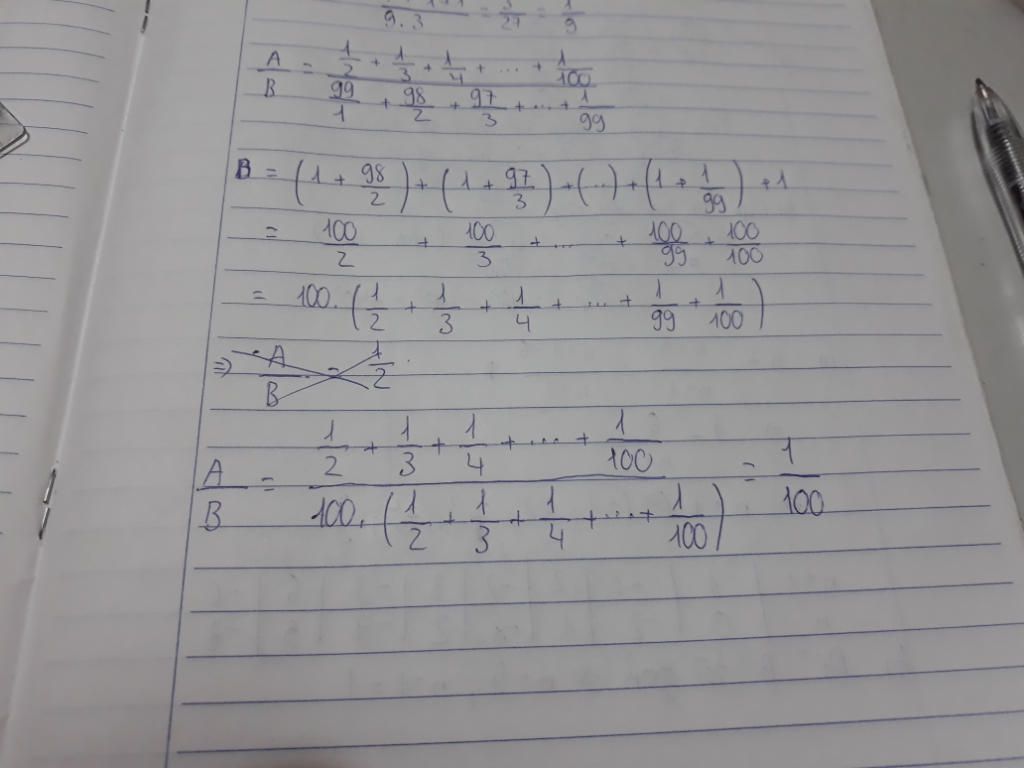 9.3 = 3/27 = 1/9
A/B = (1/2 + 1/3 + 1/4 + ... + 1/100)/(99/1 + 98/2 + 97/3 + ... + 1/99)
B = (1 + 98/2) + (1 + 97/3) + (...) + (1 + 1/99) + 1
= 100/2 + 100/3 + ... + 100/99 + 100/100
= 100.(1/2 + 1/3 + 1/4 + ... + 1/99 + 1/100)
⇒ A/B = 1/2
A/B = (1/2 + 1/3 + 1/4 + ... + 1/100)/(100.(1/2 + 1/3 + 1/4 + ... + 1/100)) = 1/100